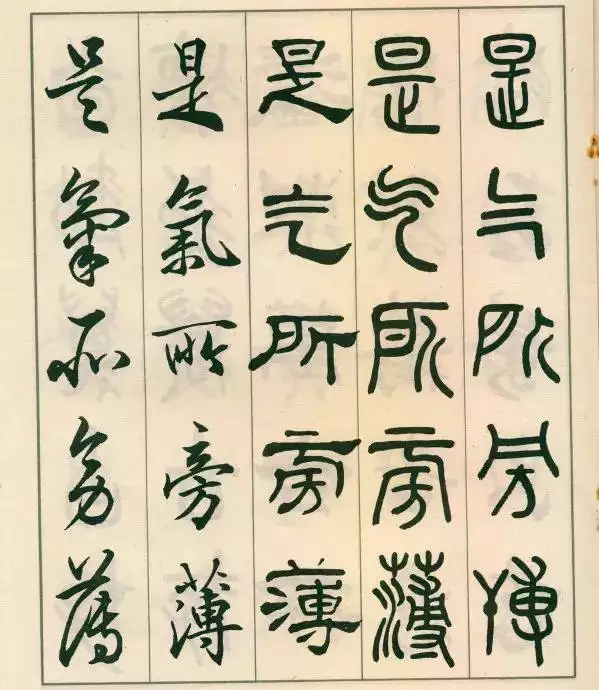 是气所旁博
是气所旁薄
是气所旁薄
是氣所旁薄
是氣所旁薄